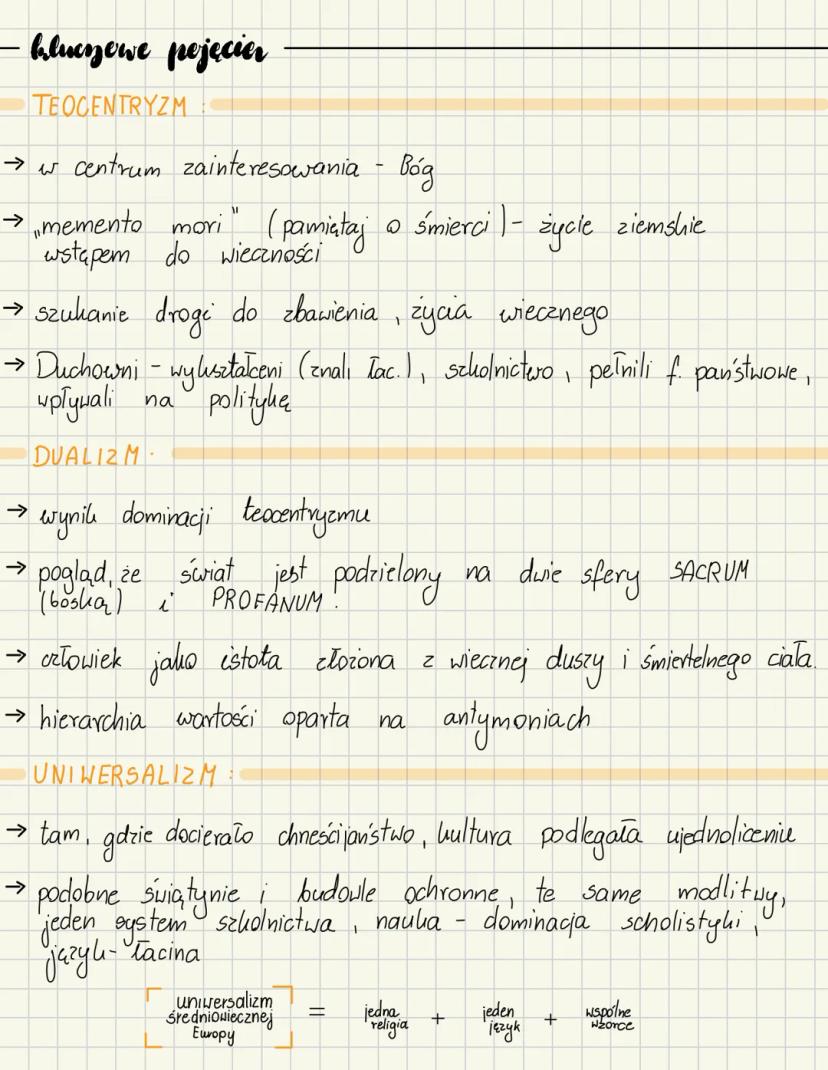 kluczowe pojęcia
TEOCENTRYZM :
→ w centrum zainteresowania - Bóg
→ „memento mori" (pamiętaj o śmierci) - życie ziemskie
wstępem do wieczności
→ szukanie drogi do zbawienia, życia wiecznego
→ Duchowni - wykształceni (znali łac.), szkolnictwo, pełnili f. państwowe,
wpływali na politykę
DUALIZM :
→ wynik dominacji teocentryzmu
→ pogląd, że świat jest podzielony na dwie sfery SACRUM
(boską) i PROFANUM.
→ człowiek jako istota złożona z wiecznej duszy i śmiertelnego ciała.
→ hierarchia wartości oparta na antymoniach
UNIWERSALIZM :
→ tam, gdzie docierało chrześcijaństwo, kultura podlegała ujednoliceniu
→ podobne świątynie i budowle ochronne, te same modlitwy,
jeden system szkolnictwa, nauka - dominacja scholistyki,
język - łacina
uniwersalizm
średniowiecznej
Europy
= jedna religia + jeden język + wspólne wzorce